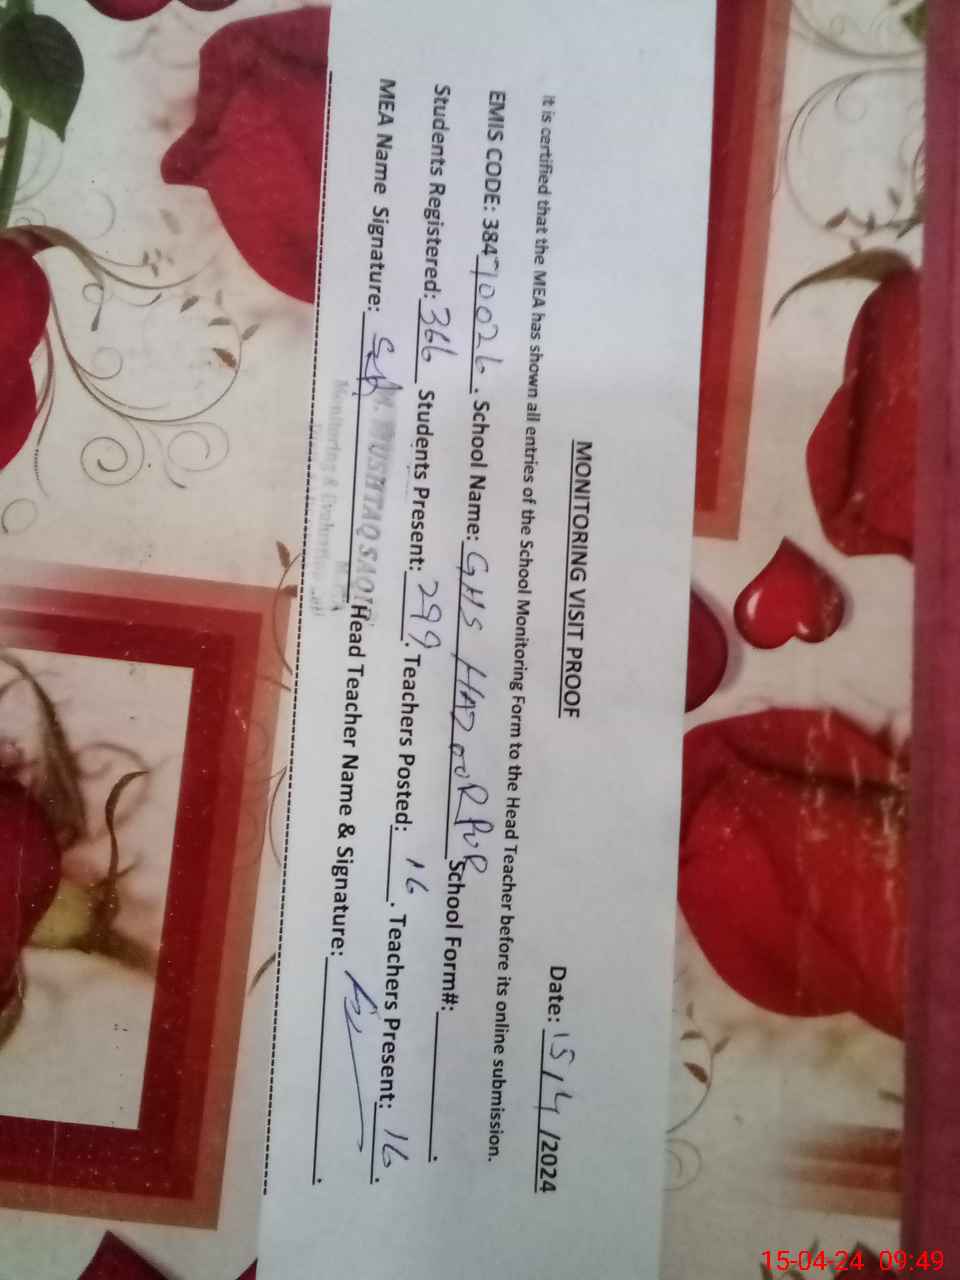 MONITORING VISIT PROOF
Date: 15/4/2024
It is certified that the MEA has shown all entries of the School Monitoring Form to the Head Teacher before its online submission.
EMIS CODE: 38410026. School Name: GHS HAZOORPUR School Form#: .
Students Registered: 366 Students Present: 299. Teachers Posted: 16. Teachers Present: 16.
MEA Name Signature: Head Teacher Name & Signature: .
MUSHTAQ SAQIB
Monitoring & Evaluation
15-04-24 09:49